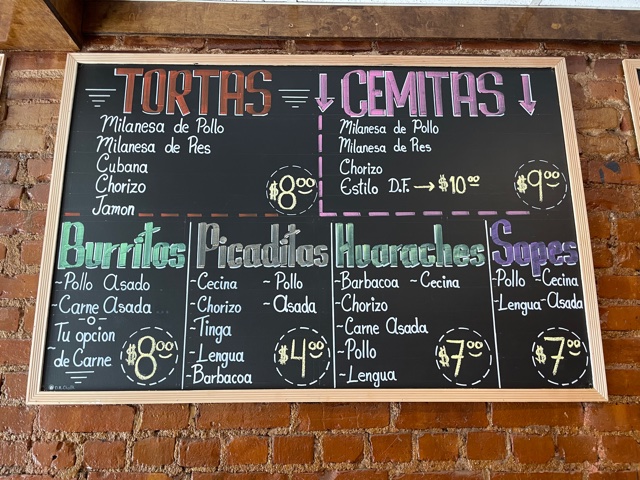 TORTAS
Milanesa de Pollo
Milanesa de Res
Cubana
Chorizo
Jamon
$8.00
CEMITAS
Milanesa de Pollo
Milanesa de Res
Chorizo
Estilo D.F. → $10.00
$9.00
Burritos
~Pollo Asado
~Carne Asada
-o-
Tu opcion
~de Carne
$8.00
Picaditas
-Cecina -Pollo
-Chorizo -Asada
-Tinga
-Lengua
-Barbacoa
$4.00
Huaraches
-Barbacoa -Cecina
-Chorizo
-Carne Asada
-Pollo
-Lengua
$7.00
Sopes
-Pollo -Cecina
-Lengua -Asada
$7.00